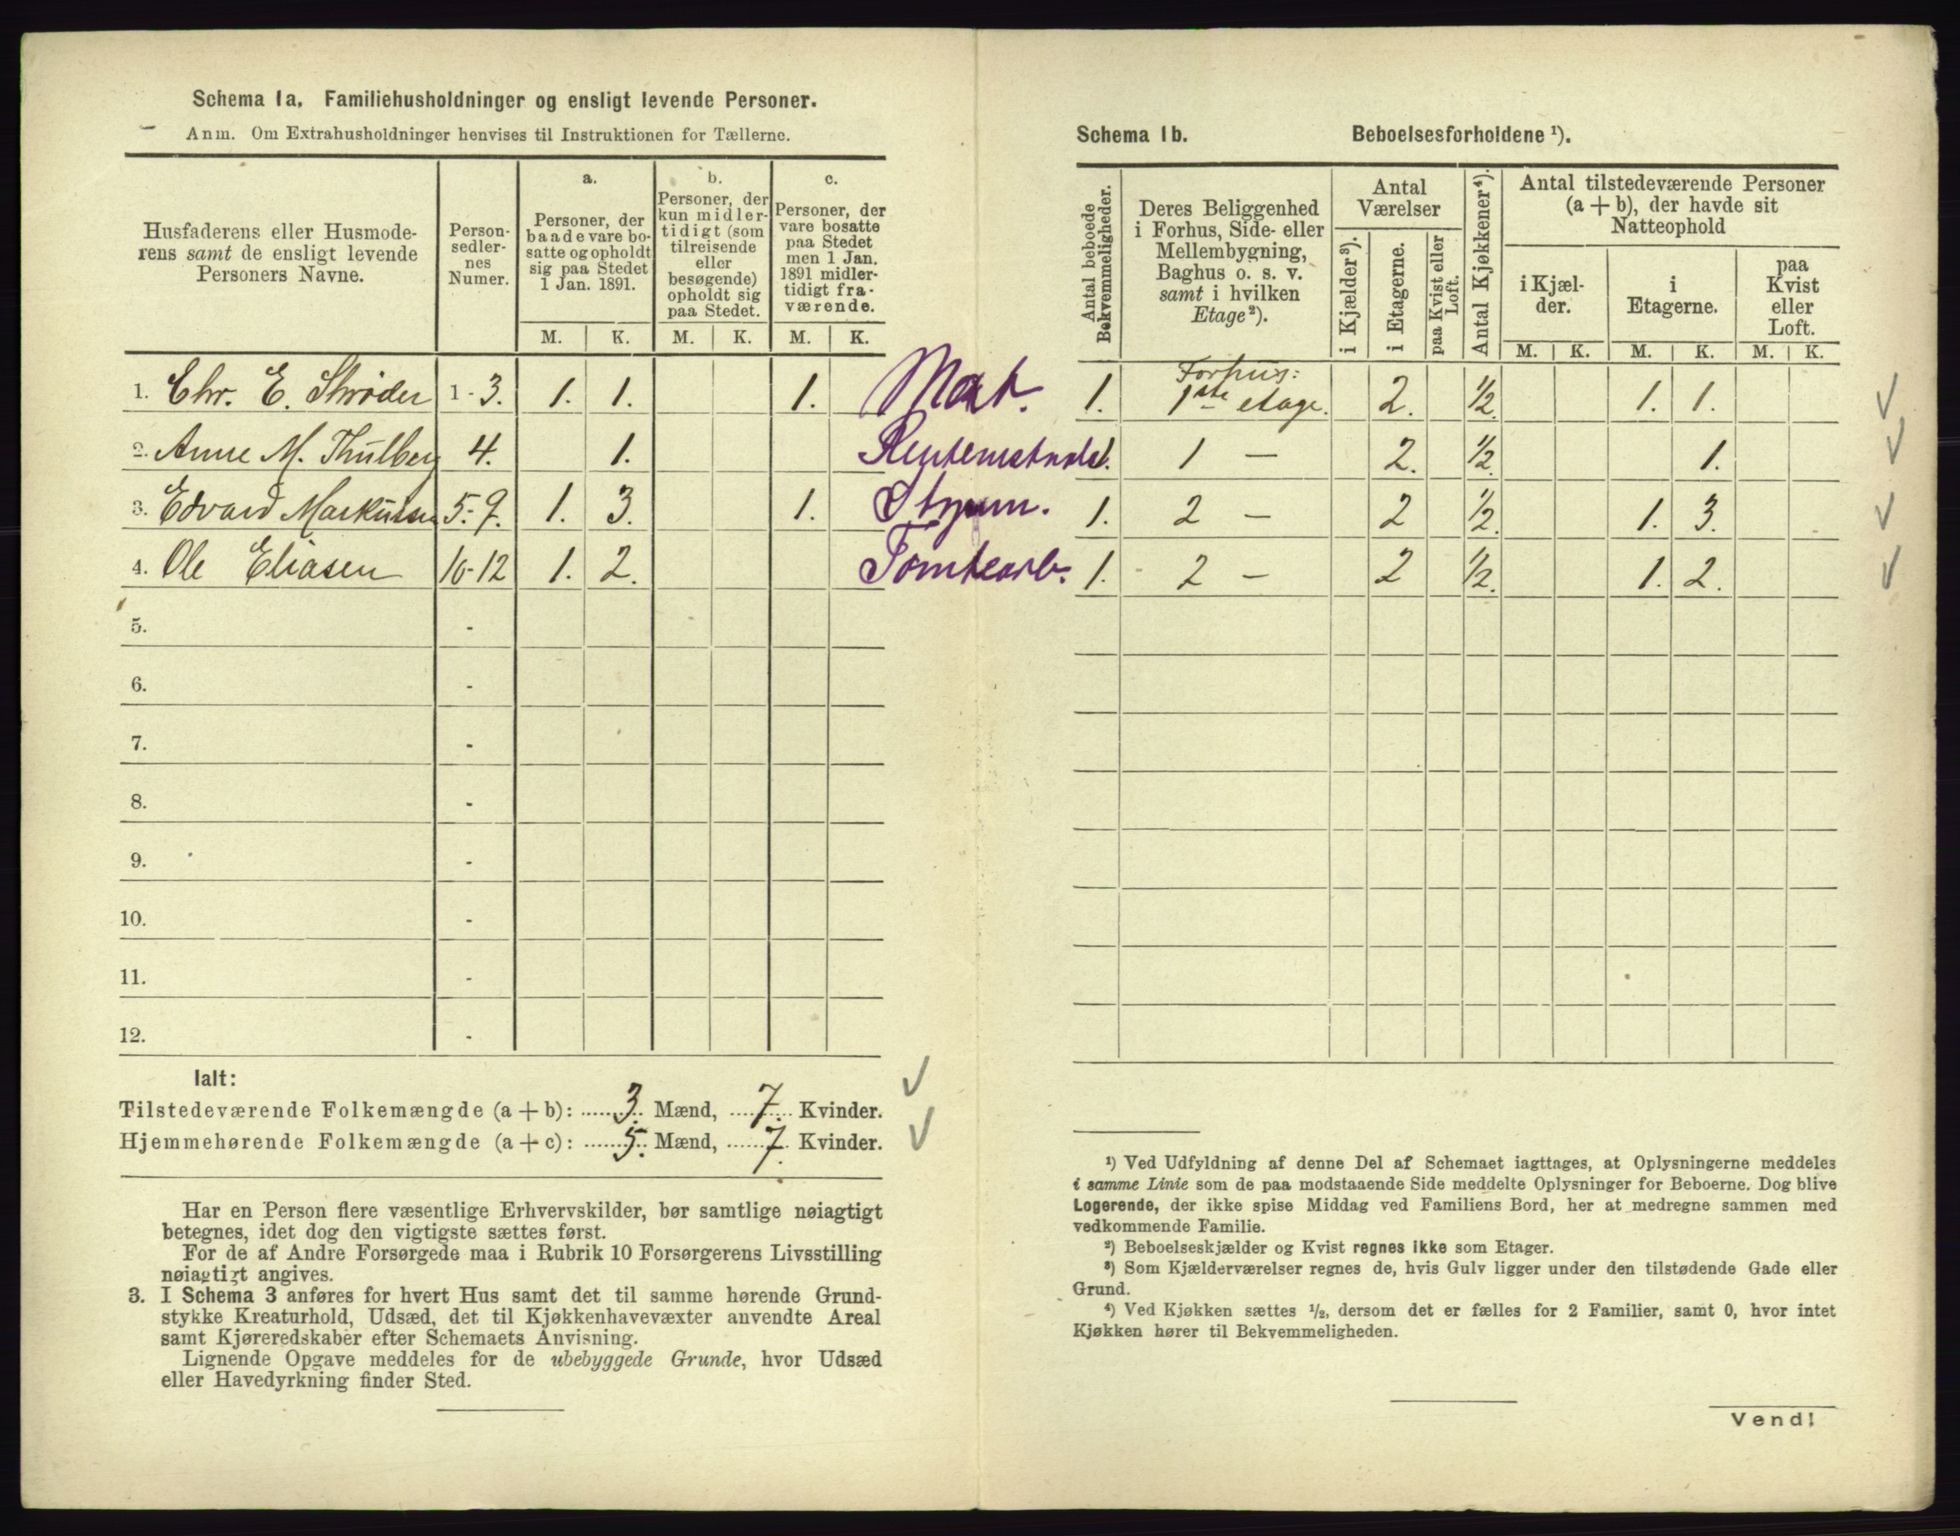 Schema 1a. Familiehusholdninger og ensligt levende Personer.
Anm. Om Extrahusholdninger henvises til Instruktionen for Tællerne.
Husfaderens eller Husmode-
rens samt de ensligt levende
Personers Navne.
Person-
sedler-
nes
Numer.
a.
Personer, der
baade vare bo-
satte og opholdt
sig paa Stedet
1 Jan. 1891.
b.
Personer, der
kun midler-
tidigt (som
tilreisende
eller
besøgende)
opholdt sig
paa Stedet.
c.
Personer, der
vare bosatte
paa Stedet
men 1 Jan.
1891 midler-
tidigt fra-
værende.
M. K. M. K. M. K.
1. Chr. E. Strøder 1-3. 1. 1. 1. Mat.
2. Anne M. Thulberg 4. 1.
3. Edvard Markussen 5-9. 1. 3. 1. Styrm.
4. Ole Eliasen 10-12 1. 2. Tomtearb.
5. -
6. -
7. -
8. -
9. -
10. -
11. -
12. -
Ialt:
Tilstedeværende Folkemængde (a + b): 3. Mænd, 7. Kvinder.
Hjemmehørende Folkemængde (a + c): 5. Mænd, 7. Kvinder.
Har en Person flere væsentlige Erhvervskilder, bør samtlige nøiagtigt
betegnes, idet dog den vigtigste sættes først.
For de af Andre Forsørgede maa i Rubrik 10 Forsørgerens Livsstilling
nøiagtigt angives.
3. I Schema 3 anføres for hvert Hus samt det til samme hørende Grund-
stykke Kreaturhold, Udsæd, det til Kjøkkenhavevæxter anvendte Areal
samt Kjøreredskaber efter Schemaets Anvisning.
Lignende Opgave meddeles for de ubebyggede Grunde, hvor Udsæd
eller Havedyrkning finder Sted.
Schema 1b. Beboelsesforholdene ¹).
Antal beboede
Bekvemmeligheder.
Deres Beliggenhed
i Forhus, Side- eller
Mellembygning,
Baghus o. s. v.
samt i hvilken
Etage²).
Antal
Værelser
i Kjælder³).
i Etagerne.
paa Kvist eller
Loft.
Antal Kjøkkener⁴).
Antal tilstedeværende Personer
(a + b), der havde sit
Natteophold
i Kjæl-
der.
i
Etagerne.
paa
Kvist
eller
Loft.
M. K. M. K. M. K.
1. Forhus:
1ste etage. 2. ½. 1. 1.
1. 1 — 2. ½. 1.
1. 2 — 2 ½. 1. 3.
1. 2 — 2 ½. 1. 2.
¹) Ved Udfyldning af denne Del af Schemaet iagttages, at Oplysningerne meddeles
i samme Linie som de paa modstaaende Side meddelte Oplysninger for Beboerne. Dog blive
Logerende, der ikke spise Middag ved Familiens Bord, her at medregne sammen med
vedkommende Familie.
²) Beboelseskjælder og Kvist regnes ikke som Etager.
³) Som Kjælderværelser regnes de, hvis Gulv ligger under den tilstødende Gade eller
Grund.
⁴) Ved Kjøkken sættes ½, dersom det er fælles for 2 Familier, samt 0, hvor intet
Kjøkken hører til Bekvemmeligheden.
Vend!